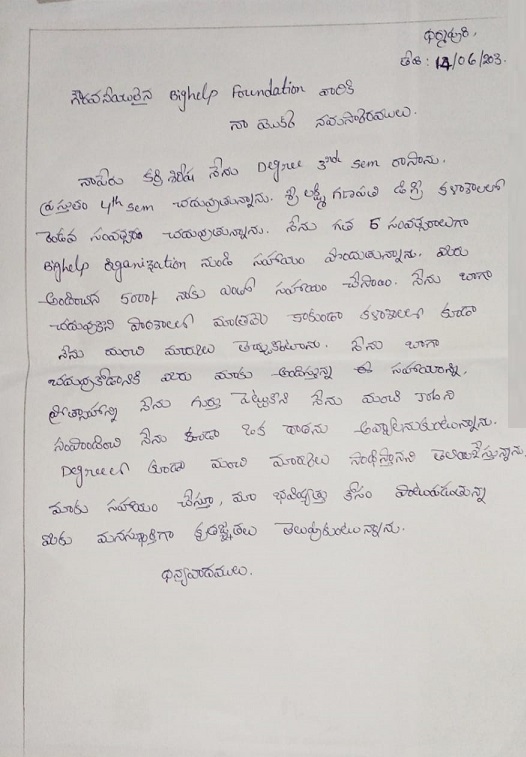 ధర్మవరి,
తేది : 14/06/203.
గౌరవనీయులైన Bighelp Foundation వారికి
నా యొక్క నమస్కారములు.
నాపేరు కర్రి శిరీష నేను Degree 3rd sem రాసాను.
ప్రస్తుతం 4th sem చదువుతున్నాను. శ్రీ లక్ష్మీ గణపతి డిగ్రీ కళాశాలలో
రెండవ సంవత్సరం చదువుతున్నాను. నేను గత 5 సంవత్సరాలుగా
Bighelp Organization నుండి సహాయం పొందుతున్నాను. మీరు
అందించిన 5000/- నాకు ఎంతో సహాయం చేసాయి. నేను బాగా
చదువుకుని పాఠశాలలో మాత్రమే కాకుండా కళాశాలలో కూడా
నేను మంచి మార్కులు తెచ్చుకుంటాను. నేను బాగా
చదువుకోడానికి మీరు మాకు అందిస్తున్న ఈ సహాయాన్ని,
ప్రోత్సాహాన్ని నేను గుర్తు పెట్టుకుని నేను మంచి ర్యాంక్‌ని
సంపాదించి నేను కూడా ఒక దాతను అవ్వాలనుకుంటున్నాను.
Degreeలో కూడా మంచి మార్కులు సాధిస్తానని తెలియజేస్తున్నాను.
మాకు సహాయం చేస్తూ, మా భవిష్యత్తు కోసం పాటుపడుతున్న
మీకు మనస్ఫూర్తిగా కృతజ్ఞతలు తెలుపుకుంటున్నాను.
ధన్యవాదములు.